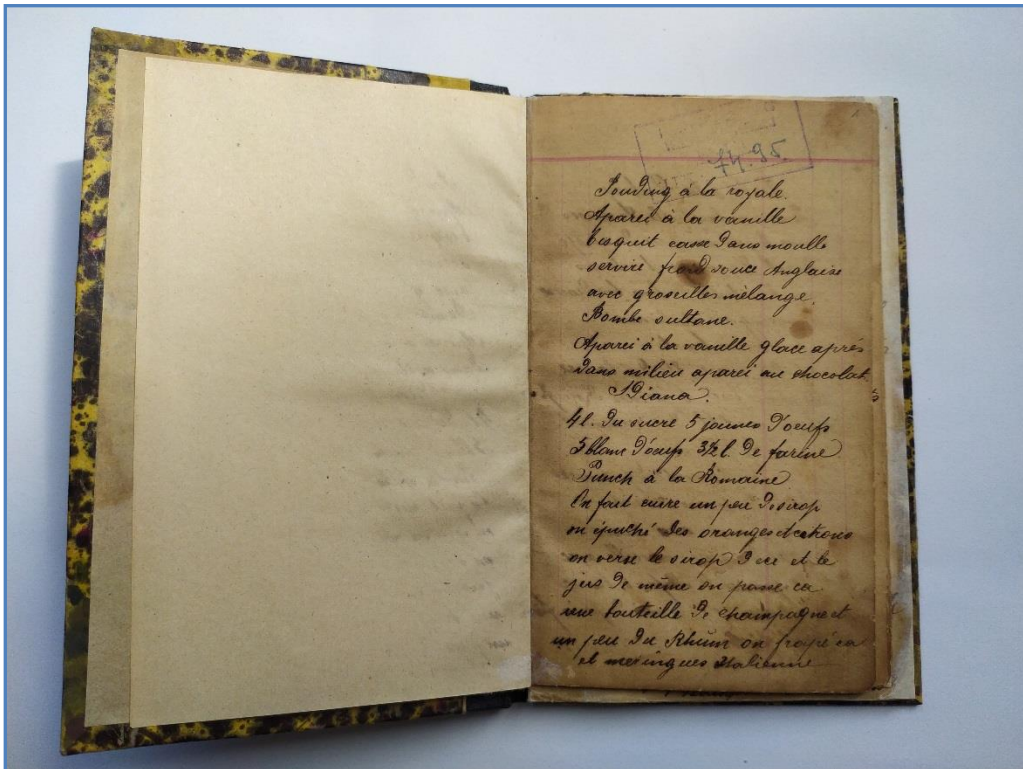 74.95
Pouding à la royale.
Aparei à la vanille
bisquit casse dans moulle
service froid souce Anglaise
avec groseilles mélange.
Bombe sultane.
Aparei à la vanille glace après
dans milieu aparei au chocolat
Diana.
4 l. du sucre 5 jaunes d'oeufs
5 blanc d'oeufs 3½ l. de farine
Punch à la Romaine
On fait cuire un peu de sirop
on épuché des oranges et citrons
on verse le sirop et le
jus de même on passe ca
une bouteille de champagne et
un peu du Rhum on frapé ca
et meringues italienne